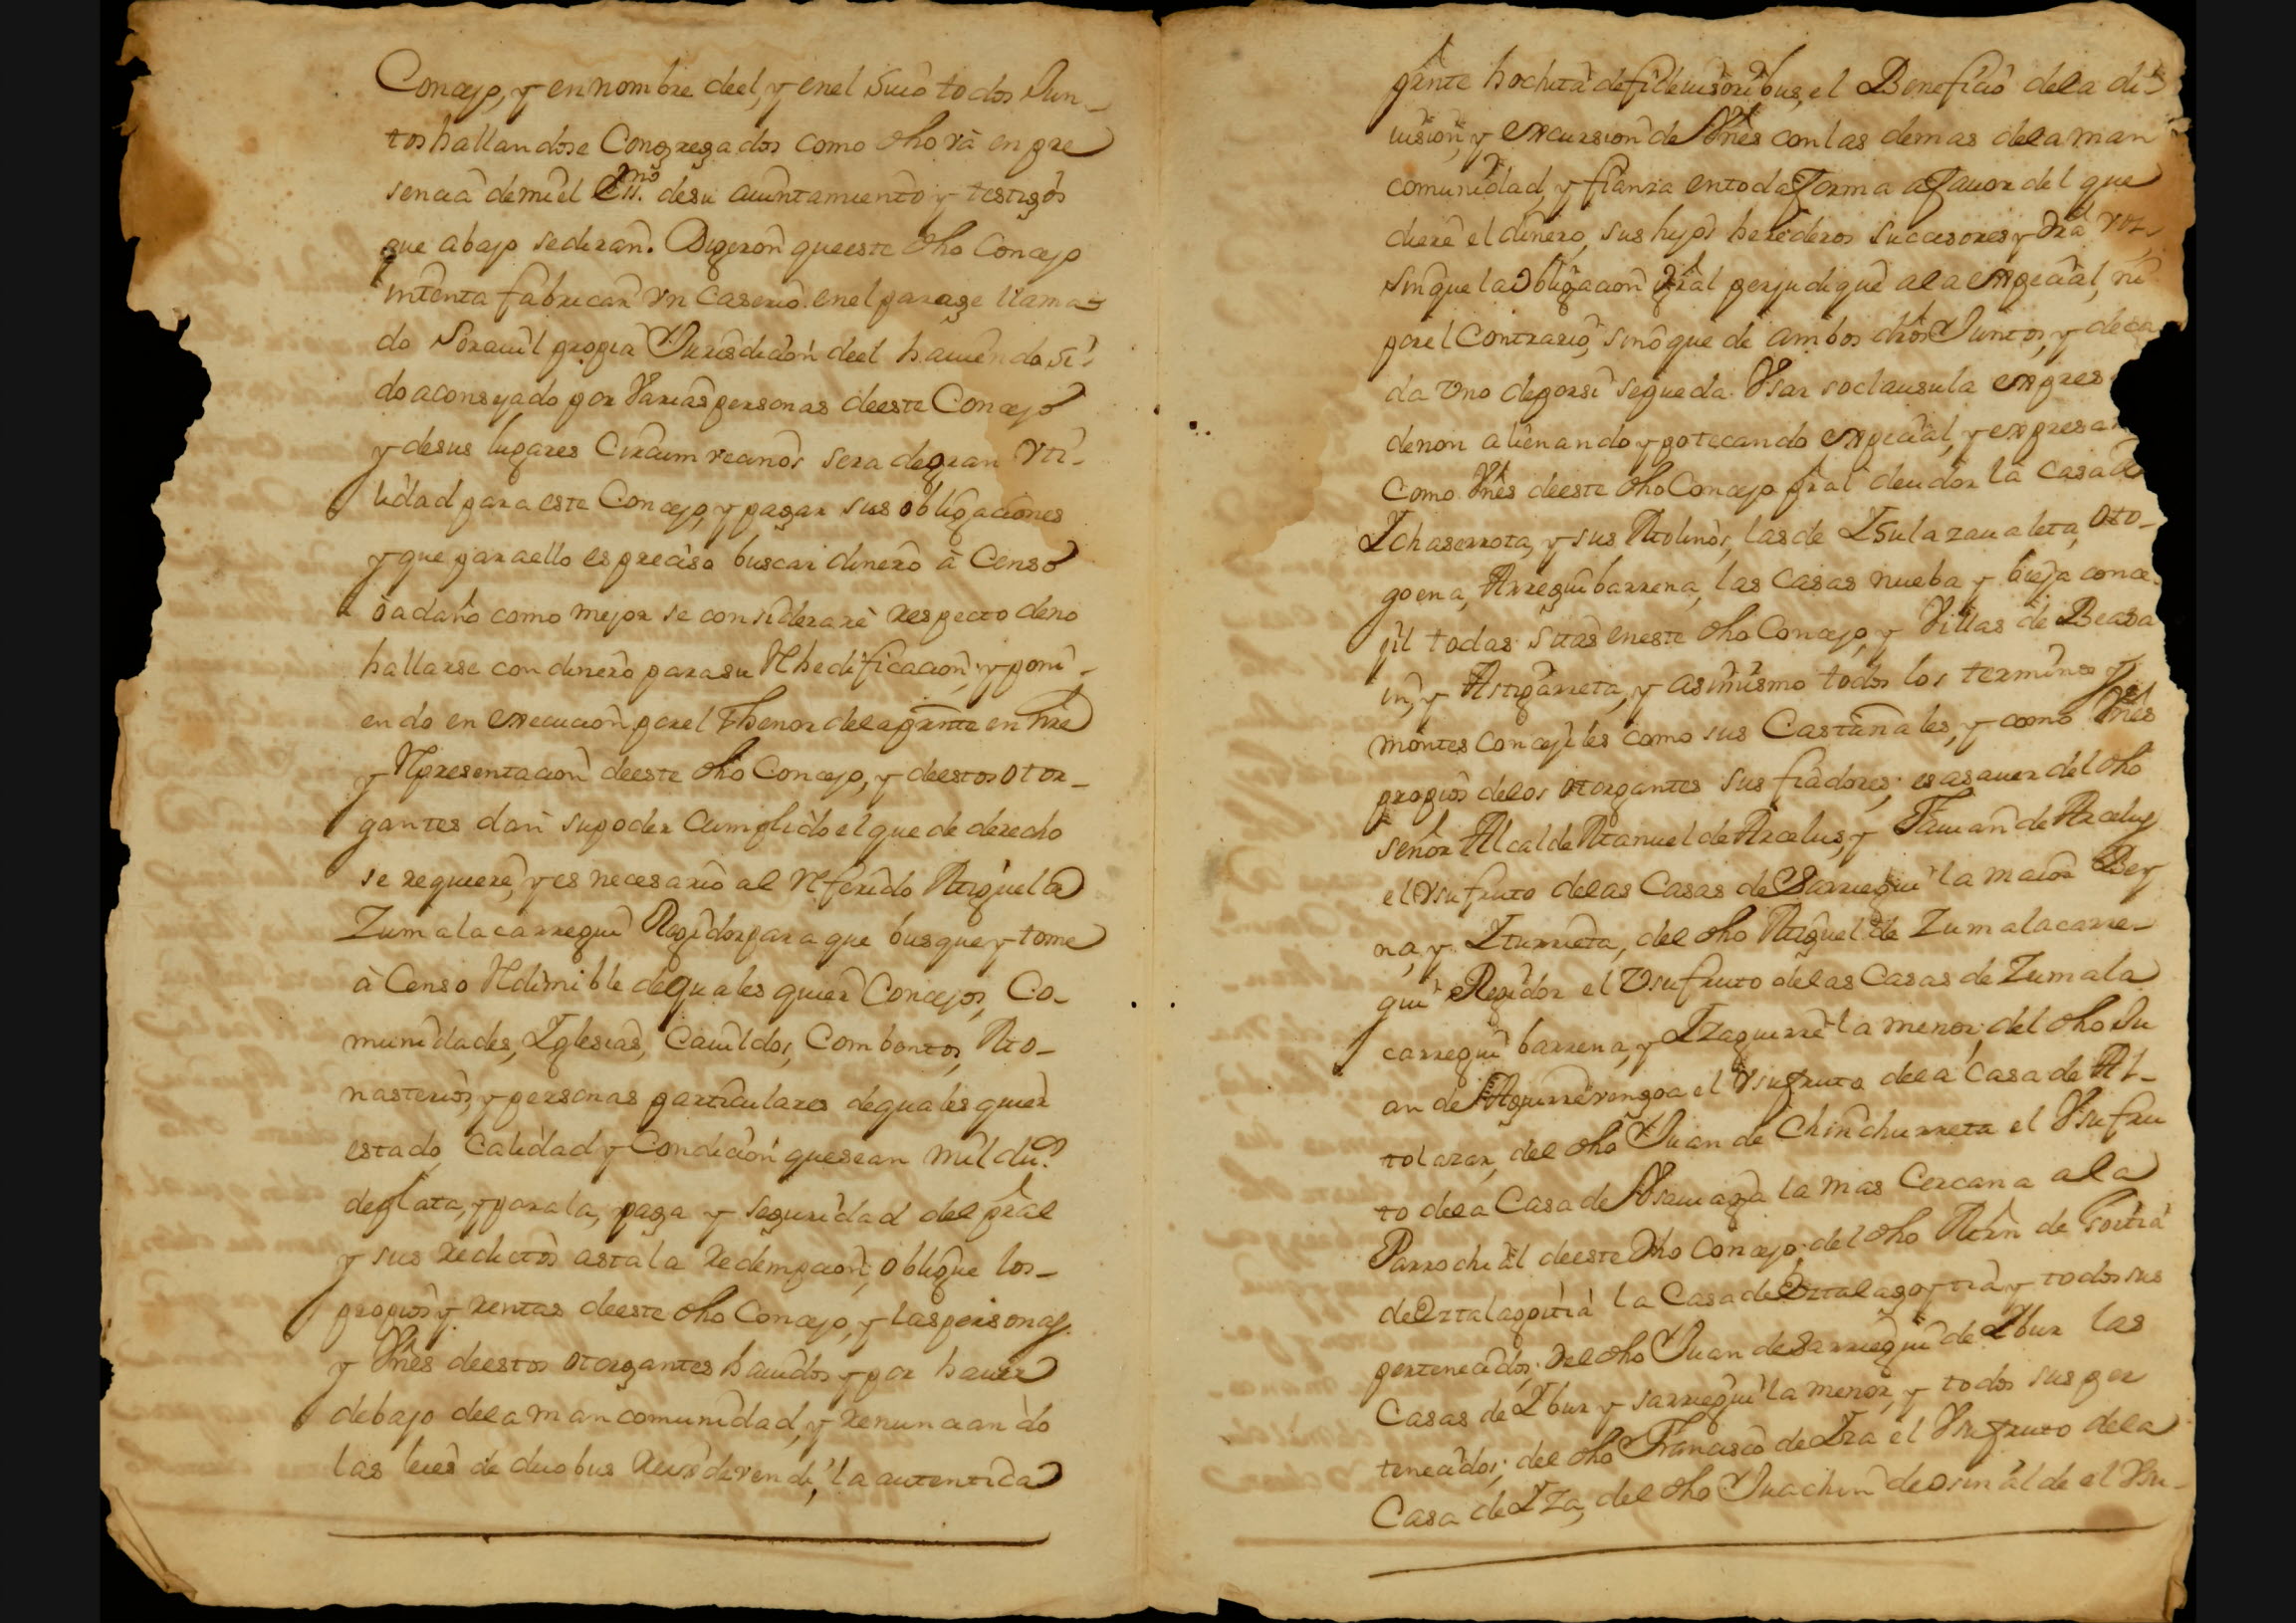 Concejo, y en nombre deel, y enel suio todos Jun-
tos hallandose Congregados como dho vâ en pre
sencia demi el Essno. desu aiuntamiento y testigos
que abajo sediran. Digeron queeste dho Concejo
intenta fabricar vn Caserio enel parage llama-
do Sorauil propia Jurisdicion deel hauiendo si-
do aconsejado por Varias personas deeste Concejo
y desus lugares Circumvecinos sera degran vti-
lidad para este Concejo, y pagar sus obligaciones
y que paraello es preciso buscar dinero â Censo
ô a daño como mejor se considerarè respecto deno
hallarse con dinero parasu Rhedificacion, y poni-
endo en execucion por el thenor dela pnte en nre
y Rpresentacion deeste dho Concejo, y deestos otor-
gantes dan supoder Cumplido el que de derecho
se requiere, y es necesario al Rferido Miguel de
Zumalacarregui Regidor para que busque y tome
à Censo Rdimible dequales quier Concejos, Co-
munidades, Iglesias, Cauildos, Combentos, Mo-
nasterios, y personas particulares dequales quier
estado, Calidad y Condicion quesean mil dus.
deplata, y para la paga y seguridad del pral
y sus reditos asta la redempcion, oblique los-
propios y rentas deeste dho Concejo, y las personas
y Vnes deestos otorgantes hauidos y por hauer
debajo dela mancomunidad, y renunciando
las leies de duobus reis devendi, la autentica
pnte hochita defideiusoribus, el Beneficio dela di-
uision, y excursion de Vnes con las demas dela man
comunidad, y fianza entoda forma a fauor del que
diere el dinero, sus hijos herederos succesores y dra voz,
sinque la obligacion gral perjudique ala expecial, ni
por el Contrario, sinò que de ambos dros Juntos, y de ca
da vno deporsi sepueda Vsar soclausula expres
denon alienando ypotecando expecial, y expresa
Como Vnes deeste dho Concejo pral deudor la casa de
Ichaserrota, y sus Molinos, las de Isulazaualeta, Oto-
goena, Arreguibarrena, las Casas nueba y bieja conce-
jil todas sitas eneste dho Concejo, y Villas de Beasa
in, y Astigarreta, y asimismo todos los terminos y
montes Concejiles como sus Castañales, y como Vnes
propios delos otorgantes sus fiadores; es asauer del dho
señor Alcalde Manuel de Arcelus, y Fauian de Arcelus
el Vsufruto delas Casas de Sarriegui la maior Bey
na, y Iturrieta, del dho Miguel de Zumalacarre-
gui Regidor el Vsufruto delas Casas de Zumala
carregui barrena, y Izaguirre la menor; del dho Ju
an de Aguirrevengoa el Vsufruto dela Casa de Al-
tolazar, del dho Juan de Chinchurreta el Vsufru
to dela Casa de Vsamaza la mas Cercana ala
Parrochial deeste dho Concejo; del dho Mrn de Goitia
de Ortalagoitia la Casa de Ortalagoytia y todos sus
pertenecidos; del dho Juan de Sarriegui de Ibur las
Casas de Ibur y Sarriegui la menor, y todos sus per
tenecidos; del dho Francisco de Iza el Vsufruto dela
Casa de Iza, del dho Juachin de osinalde el Vsu-